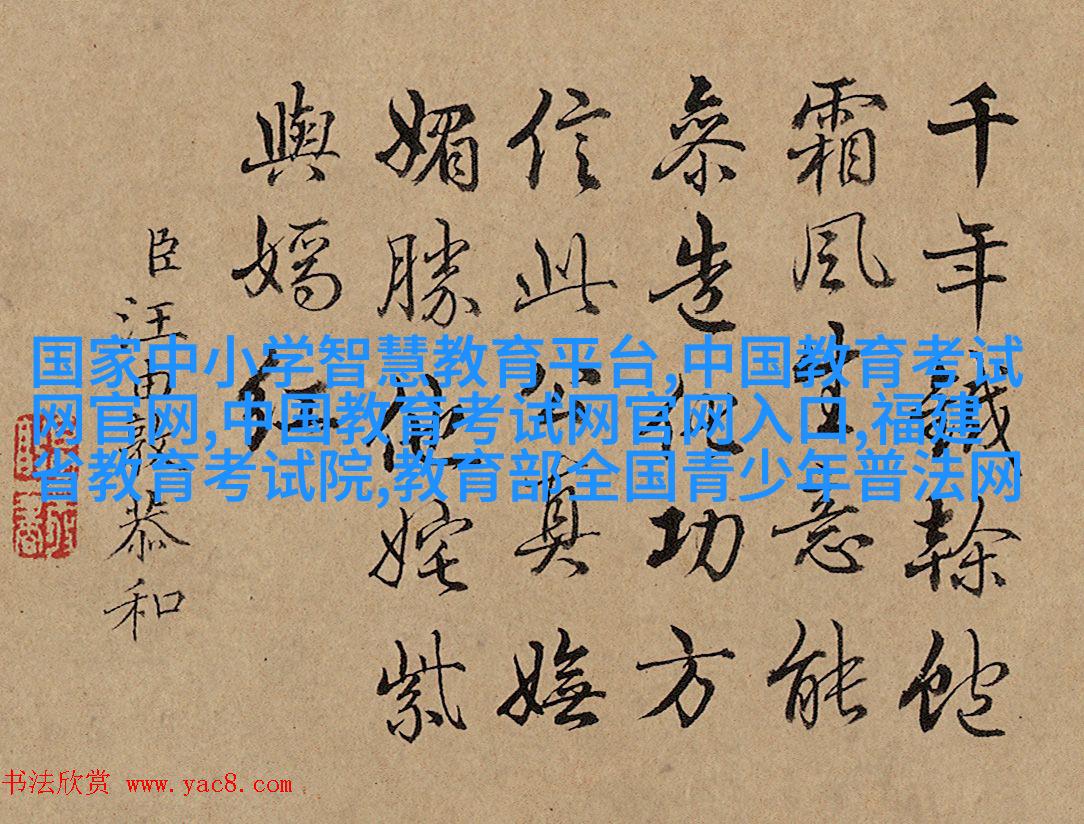 千年鐵榦飽
霜風生意能
參造化功方
信此公真嫵
媚勝姹紫
與嫣紅
臣汪由敦恭和
国家中小学智慧教育平台,中国教育考试
网官网,中国教育考试网官网入口,福建
省教育考试院,教育部全国青少年普法网
书法欣赏 www.yac8.com